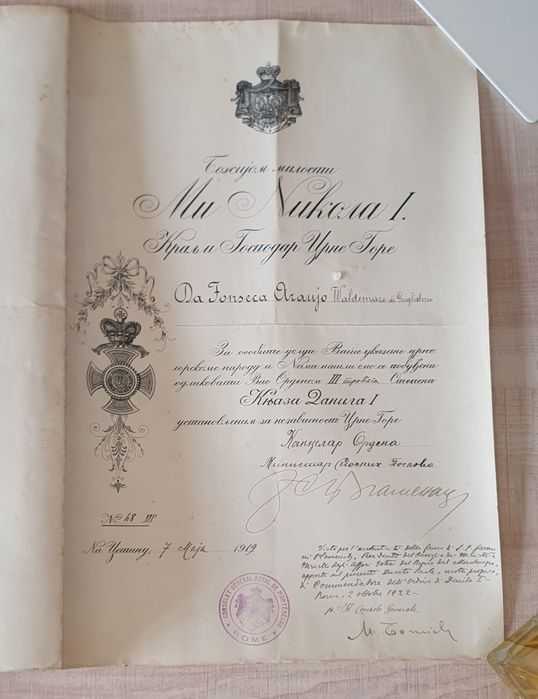 Божијом милости
Ми Никола I.
Краљ и Господар Црне Горе
Da Fonseca Araujo Waldemaro di Guglielmo
За особите услуге Ваше указане црно-
горскоме народу и Нама нашли смо се побуђени
одликовати Вас Орденом III трећега Степена
Књаза Данила I
установљеним за независност Црне Горе
Канцелар Ордена
Министар Спољних Послова
№ 48 III
На Цетињу, 7 Маја 1919
Visto per l'autenticità della firma di S. E. Giovanni
Plamenatz, Presidente del Consiglio dei Ministri e
Ministro degli Affari Esteri del Regno del Montenegro,
apposta sul presente Decreto Reale, motu proprio,
di Commendatore dell'Ordine di Danilo I.
Roma, 2 ottobre 1922
p. Il Console Generale
CONSULAT GENERAL ROYAL DE MONTENEGRO
ROME